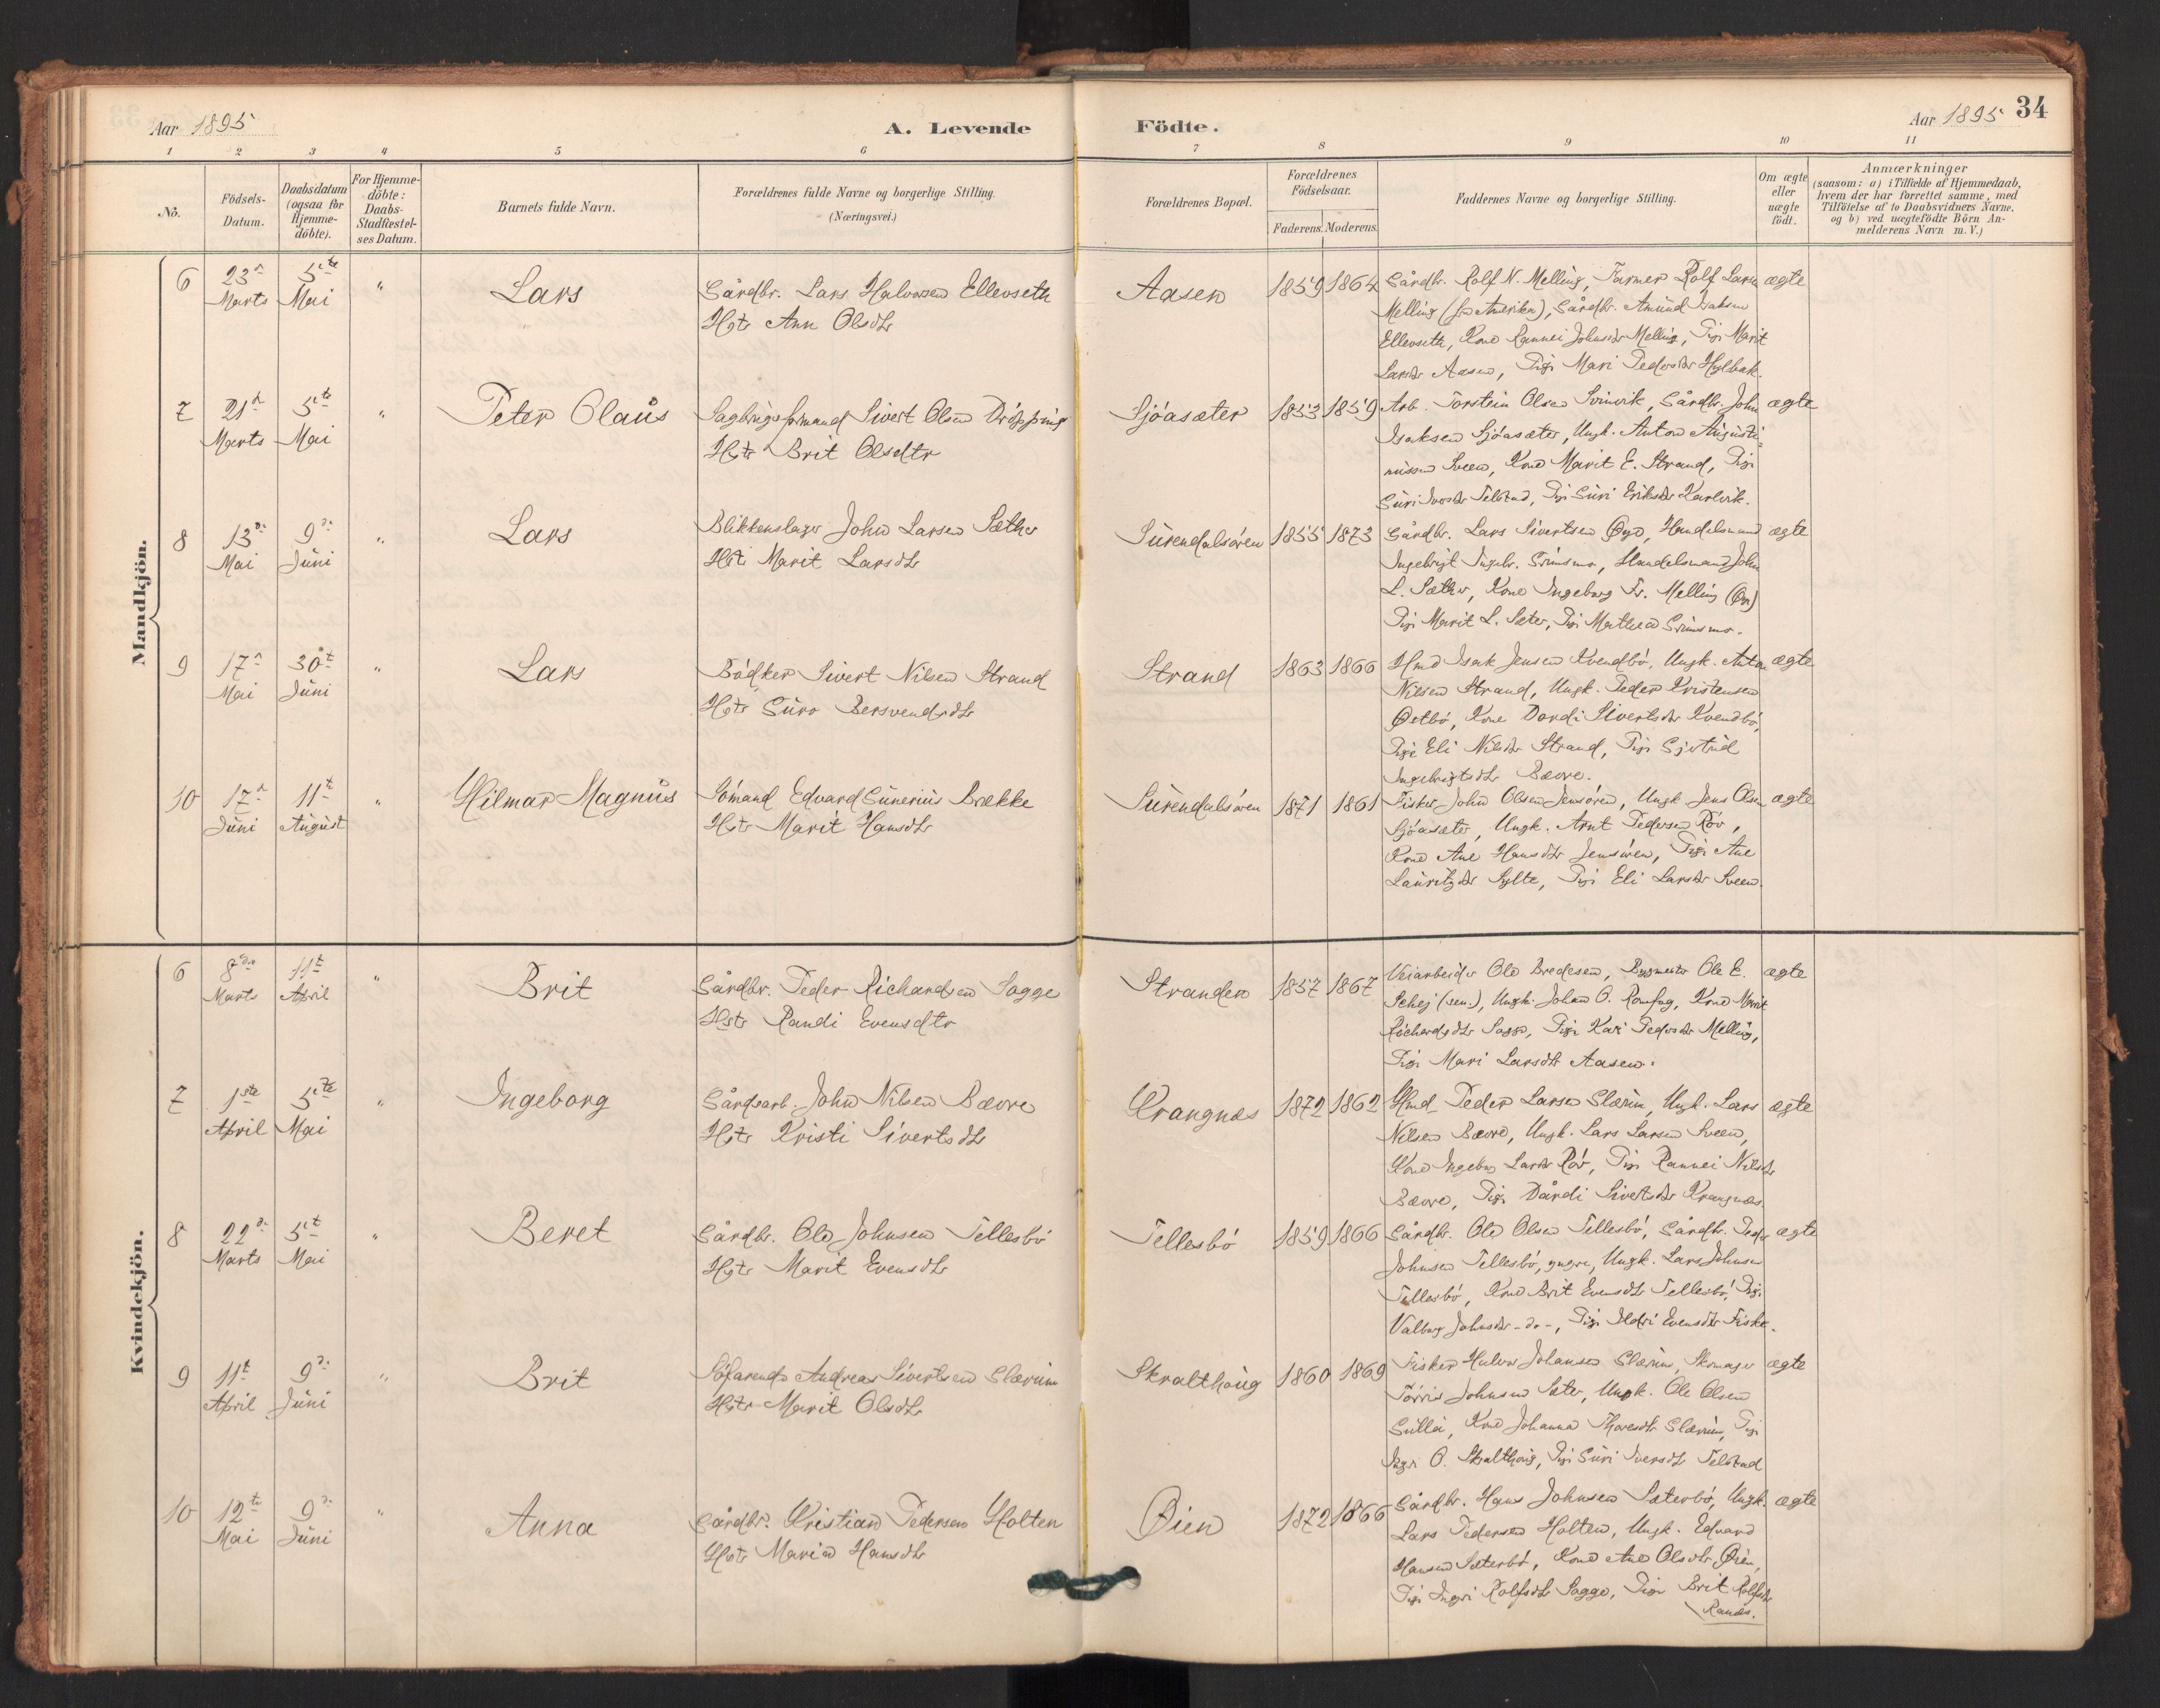 Aar 1895
A. Levende
Födte.
Aar 1895
34
1 2 3 4 5 6 7 8 9 10 11
No.
Födsels-
Datum.
Daabsdatum
(ogsaa for
Hjemme-
döbte).
For Hjemme-
döbte:
Daabs-
Stadfæstel-
ses Datum.
Barnets fulde Navn.
Forældrenes fulde Navne og borgerlige Stilling.
(Næringsvei.)
Forældrenes Bopæl.
Forældrenes
Födselsaar.
Faderens. Moderens.
Faddernes Navne og borgerlige Stilling.
Om ægte
eller
uægte
födt.
Anmærkninger
(saasom: a) i Tilfælde af Hjemmedaab,
hvem der har forrettet samme, med
Tilföielse af to Daabsvidners Navne,
og b) ved uægtefödte Börn An-
melderens Navn m. V.)
Mandkjön.
6
23de
Marts
5te
Mai
"
Lars
Gårdbr. Lars Halvorsen Ellevseth
Hstr Ann Olsdtr
Aasen
1859 1864
Gårdbr. Rolf N. Melling, Farmer Rolf Larsen
Melling (fra Amerika), Gårdbr. Amund Isaksen
Ellevseth, Kone Rannei Johnsdtr Melling, Pige Marit
Larsdtr Aasen, Pige Mari Pedersdtr Hylbak.
ægte
7
21de
Marts
5te
Mai
"
Peter Olaus
Sagbrugsformand Sivert Olsen Dröpping
Hstr Brit Olsdtr
Sjöasæter
1853 1859
Arb. Torstein Olsen Svinvik, Gårdbr. John
Isaksen Sjöasæter, Ungk. Anton Augusti-
nussen Sveen, Kone Marit E. Strand, Pige
Guri Iversdtr Telstad, Pige Guri Eriksdtr Karlvik.
ægte
8
13de
Mai
9de
Juni
"
Lars
Blikkenslager John Larsen Sæther
Hstr Marit Larsdtr
Surendalsören
1855 1873
Gårdbr. Lars Sivertsen Øye, Handelsmand
Ingebrigt Ingebr. Grimsmo, Handelsmand John
L. Sæther, Kone Ingeborg Fr. Melling
Pige Marit L. Sæter, Pige Mathea Grimsmo.
ægte
9
17de
Mai
30te
Juni
"
Lars
Bödker Sivert Nilsen Strand
Hstr Guro Bersvendsdtr
Strand
1863 1866
Hmd Isak Jensen Kvendbö, Ungk. Anton
Nilsen Strand, Ungk. Peder Kristensen
Østbö, Kone Dordi Sivertsdtr Kvendbö,
Pige Eli Nilsdtr Strand, Pige Gjertrud
Ingebrigtsdtr Bævre.
ægte
10
17de
Juni
11te
August
"
Hilmar Magnus
Sömand Edvard Gunerius Brække
Hstr Marit Hansdtr
Surendalsören
1871 1861
Fisker John Olsen Jensören, Ungk Jens Olsen
Sjöasæter, Ungk. Arnt Pedersen Röv,
Kone Ane Hansdtr Jensören, Pige Ane
Lauritzdtr Sylte, Pige Eli Larsdtr Sveen.
ægte
Kvindekjön.
6
8de
Marts
11te
April
"
Brit
Gårdbr. Peder Richardsen Sogge
Hstr Randi Evensdtr
Stranden
1857 1867
Veiarbeider Ole Bredesen, Bygmester Ole E.
Schej (sen.), Ungk. Johan O. Romfog, Kone Marit
Richardsdtr Sogge, Pige Kari Pedersdtr Melling,
Pige Mari Larsdtr Aasen.
ægte
7
1ste
April
5te
Mai
"
Ingeborg
Gårdarb. John Nilsen Bævre
Hstr Kristi Sivertsdtr
Krangnæs
1872 1862
Hmd. Peder Larsen Glærum, Ungk. Lars
Nilsen Bævre, Ungk. Lars Larsen Sveen,
Kone Ingebor Larsdtr Röv, Pige Rannei Nilsdtr
Bævre, Pige Dårdi Sivertsdtr Krangnæs
ægte
8
22de
Marts
5te
Mai
"
Beret
Gårdbr. Ole Johnsen Tellesbö
Hstr Marit Evensdtr
Tellesbö
1859 1866
Gårdbr. Ole Olsen Tellesbö, Gårdbr. Peder
Johnsen Tellesbö, yngre, Ungk. Lars Johnsen
Tellesbö, Kone Brit Evensdtr Tellesbö, Pige
Valborg Johnsdtr -do-, Pige Ildri Evensdtr Fiske.
ægte
9
11te
April
9de
Juni
"
Brit
Söfarende Andreas Sivertsen Glærum
Hstr Marit Olsdtr
Skralthaug
1860 1869
Fisker Halvor Johansen Glærum, Skomager
Törris Johnsen Sæter, Ungk. Ole Olsen
Gulla, Kone Johanna Thoresdtr Glærum, Pige
Ingri O. Skralthaug, Pige Guri Iversdtr Telstad
ægte
10
12te
Mai
9de
Juni
"
Anna
Gårdbr. Kristian Pedersen Holten
Hstr Maria Hansdtr
Øien
1872 1866
Gårdbr. Hans Johnsen Sæterbö, Ungk.
Lars Pedersen Holten, Ungk. Edvard
Hansen Sæterbö, Kone Ane Olsdtr Øien,
Pige Ingri Rolfsdtr Sogge, Pige Brit Rolfsdtr
Ranæs.
ægte